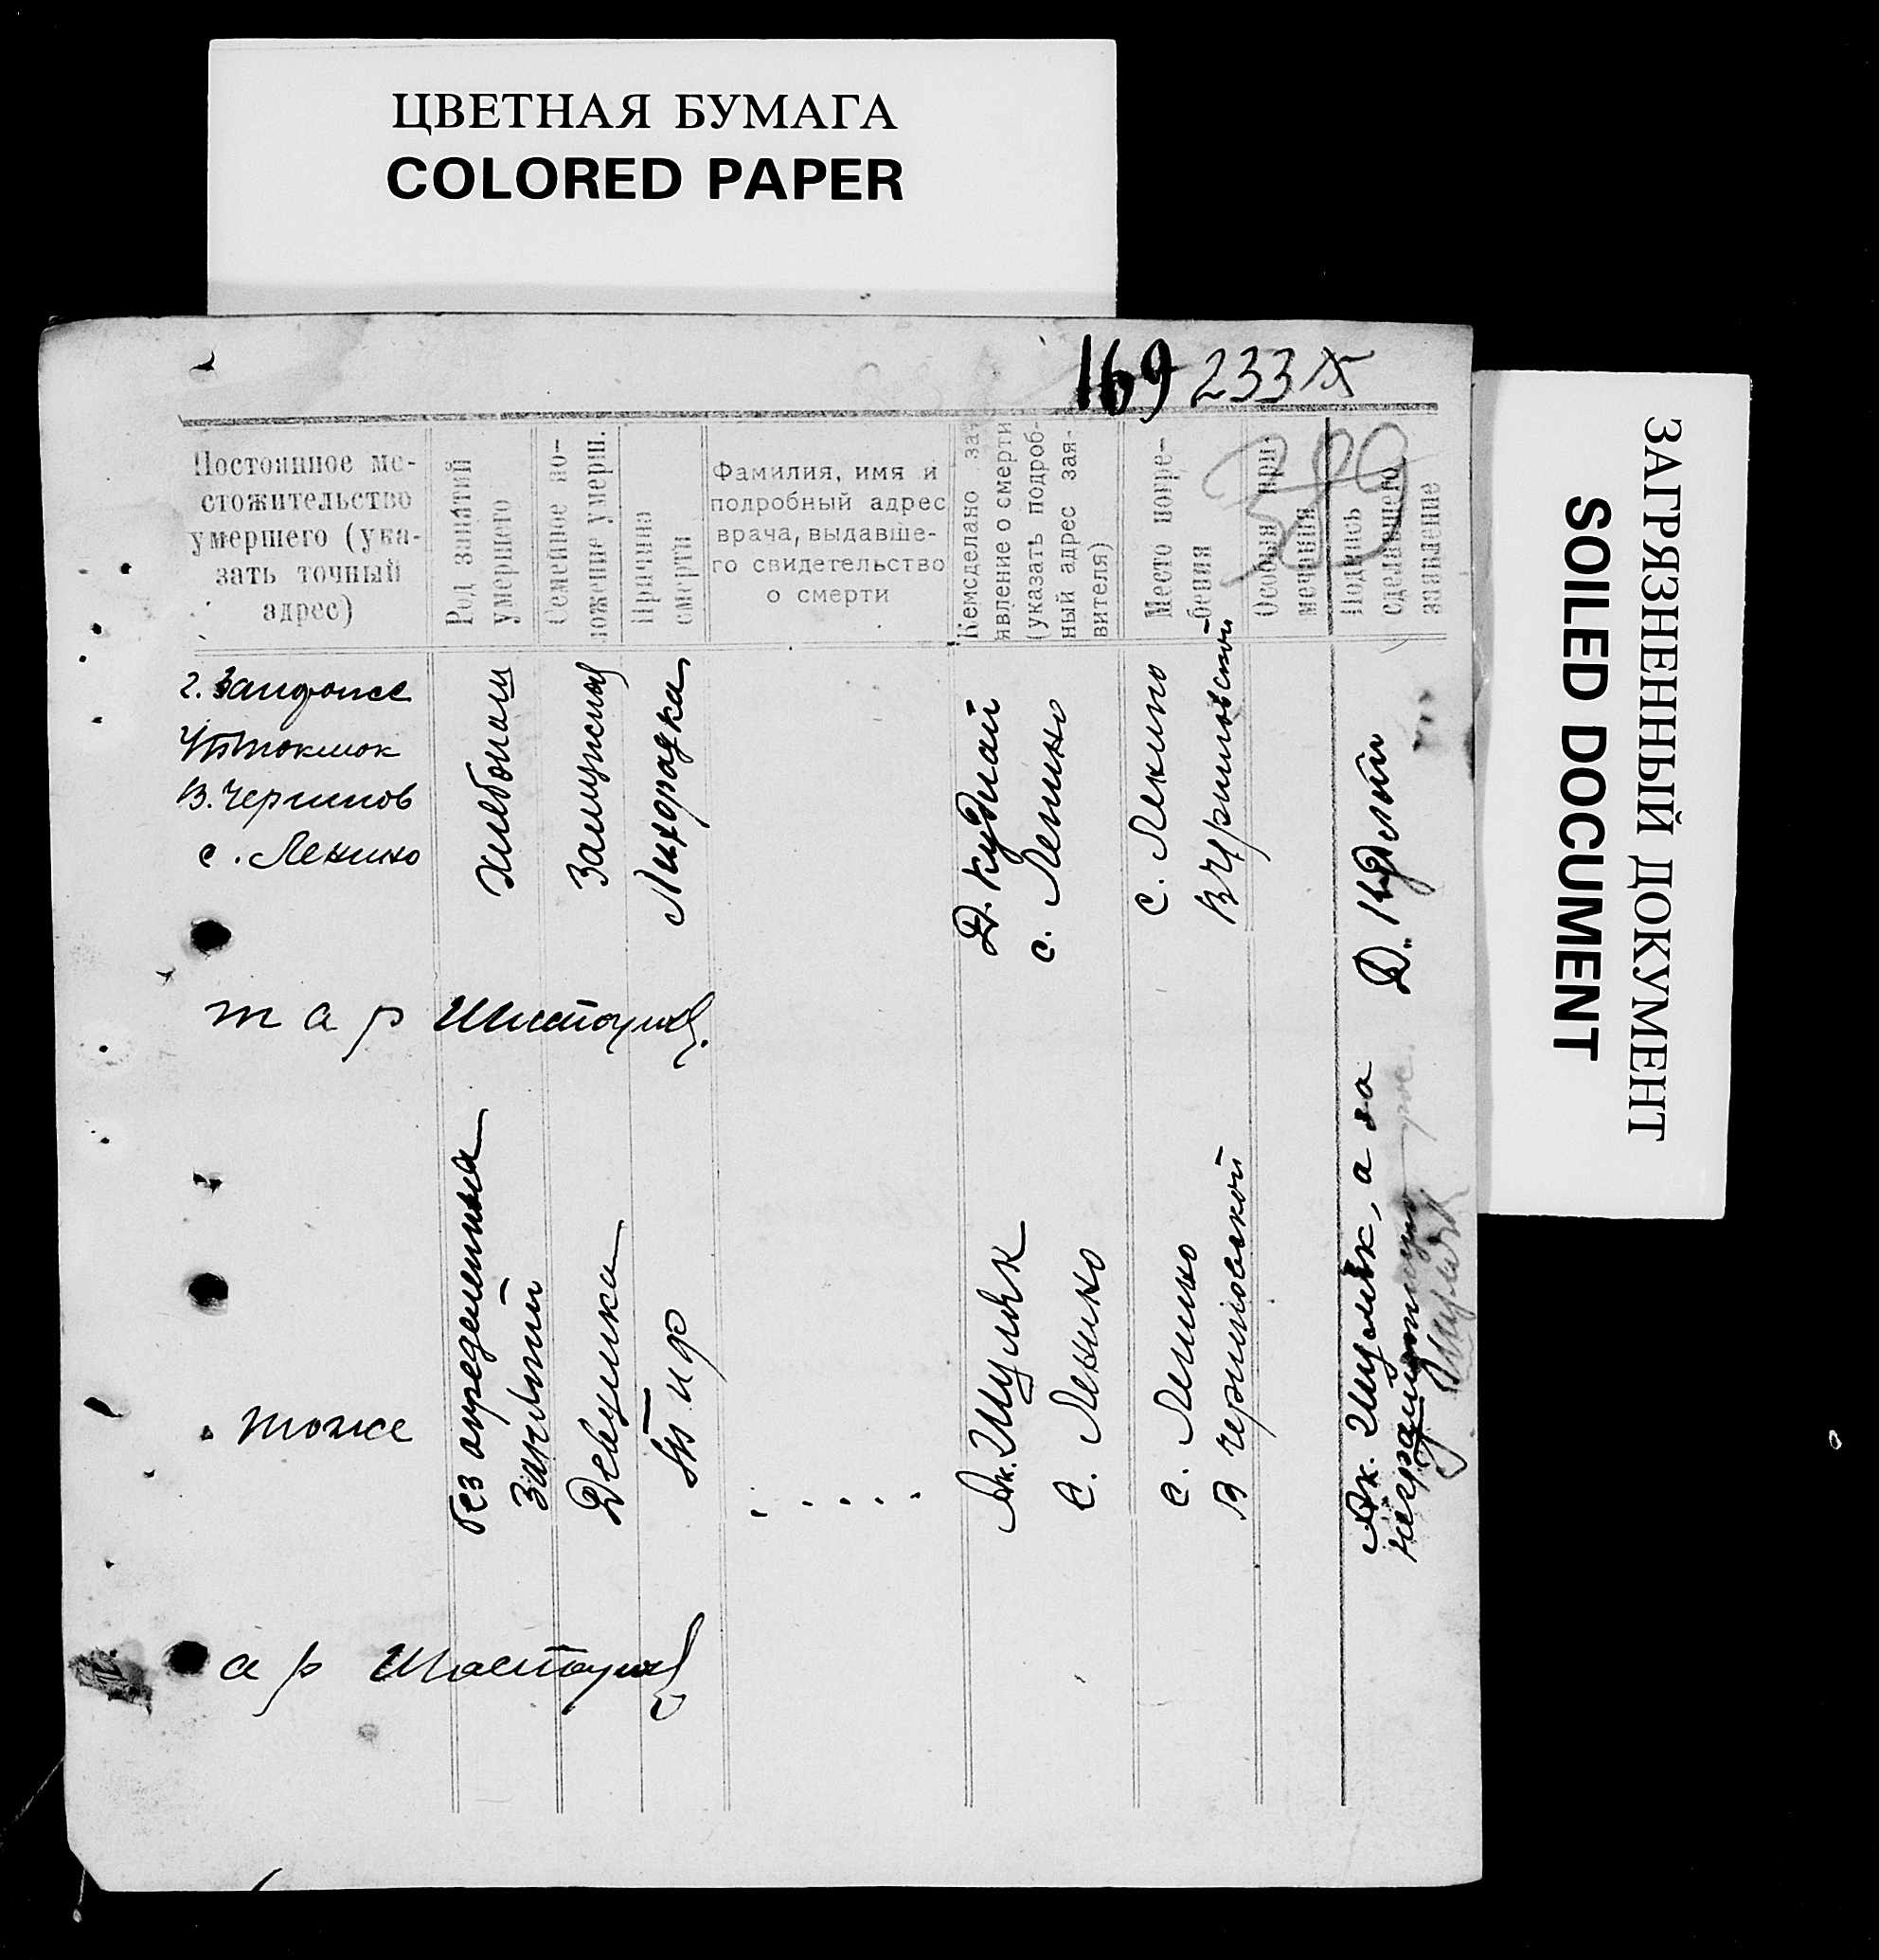 ЦВЕТНАЯ БУМАГА
COLORED PAPER
ЗАГРЯЗНЕННЫЙ ДОКУМЕНТ
SOILED DOCUMENT
169 233
389
Постоянное ме-
стожительство
умершего (ука-
зать точный
адрес)
Род занятий
умершего
Семейное по-
ложение умерш.
Причина
смерти
Фамилия, имя и
подробный адрес
врача, выдавше-
го свидетельство
о смерти
Кем сделано за-
явление о смерти
(указать подроб-
ный адрес зая-
вителя)
Место погре-
бения
Особыя при-
мечания
Подпись
сделавшего
заявление
г. Запорожье
Токмок
В. Чернигов
с. Ленино
хлебопаш
Замужняя
Лихорадка
Д. Кудлай
с. Ленино
с. Ленино
В Черниговской
Д.
т а р
тоже
без определенна
занятий
Девушка
тиф
Ак. Шуляк
с. Ленино
с. Ленино
В Черниговской
Ак. Шуляк, а за
неграмотную
рос.
а р